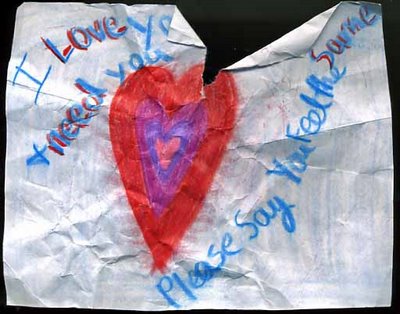 I Love Yo
& need you
Please Say You Feel the Same